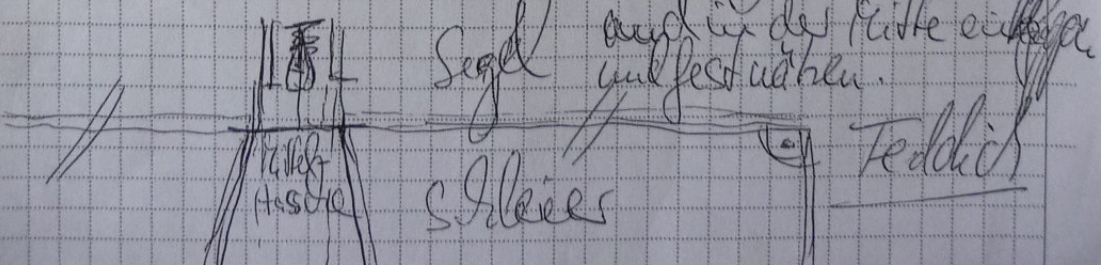 Segel
und in der Mitte einlegen
und festnähen.
Mittel-
tasche
Schleier
Teddich